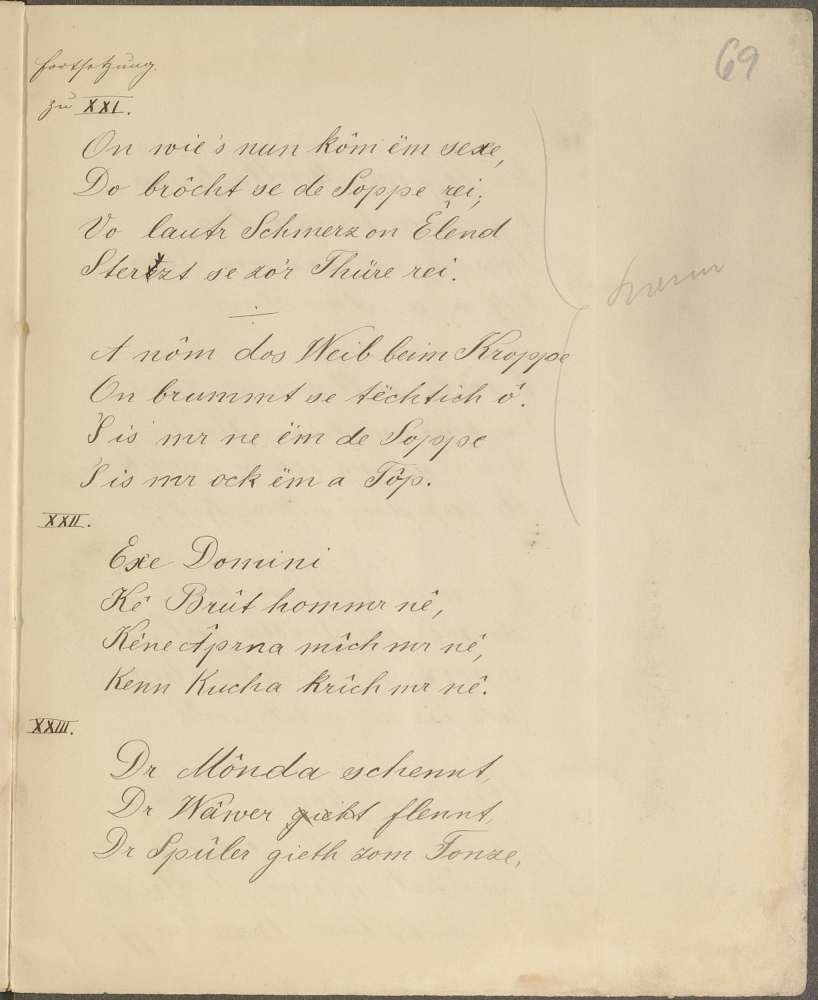 69
Fortsetzung.
zu XXI.
On wie's nun kôm ëm sexe,
Do brôcht se de Soppe rei;
Vo lautr Schmerz on Êlend
Sterzt se zo'r Thüre rei.
A nôm dos Weib beim Kroppe
On brummt se tëchtich ô.
S is mr ne ëm de Soppe
S is mr ock ëm a Tôp.
XXII.
Exe Domini
Kê Brût hommr nê,
Kêne Âprna mîch mr nê,
Kenn Kucha krîch mr nê.
XXIII.
Dr Mônda schennt,
Dr Wâwer gieht flennt,
Dr Spûler gieth zom Tonze,